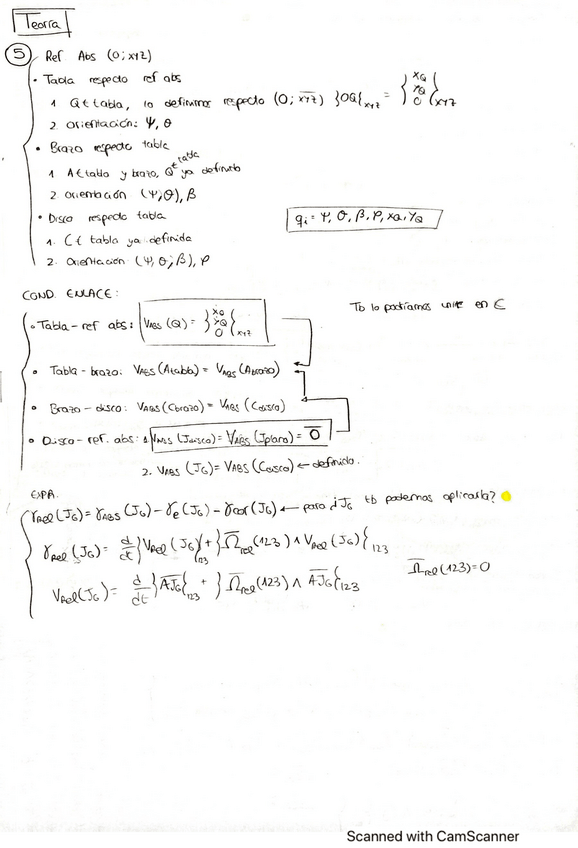 Teoría
5 Ref Abs (O; xyz)
• Tabla respecto ref abs
1 Q ∈ tabla, lo definimos respecto (O; XYZ) }OQ{xyz = } XQ YQ O {XYZ
2. Orientación: Ψ, θ
• Brazo respecto tabla
1 A ∈ tabla y brazo, Q ∈ tabla ya definido
2 Orientación (Ψ, θ), β
• Disco respecto tabla
1. C ∈ tabla ya definida
2. Orientación (Ψ, θ, β), φ
qi = Ψ, θ, β, φ, XQ, YQ
COND. ENLACE:
Tb lo podríamos unir en C
• Tabla - ref abs: VABS (Q) = } ẊQ ẎQ O {XYZ
• Tabla - brazo: VABS (Atabla) = VABS (Abrazo)
• Brazo - disco: VABS (Cbrazo) = VABS (Cdisco)
• Disco - ref. abs: 1. VABS (Jdisco) = VABS (Jplano) = O
2. VABS (JG) = VABS (Cdisco) ← definido.
γRel (JG) = γABS (JG) - γe (JG) - γcor (JG) ← para d JG tb podemos aplicarla?
γRel (JG) = d/dt }VRel (JG){123 + }Ωrel (123) ∧ VRel (JG){123
Ωrel (123) = 0
VRel (JG) = d/dt }AJG{123 + }Ωrel (123) ∧ AJG{123
Scanned with CamScanner